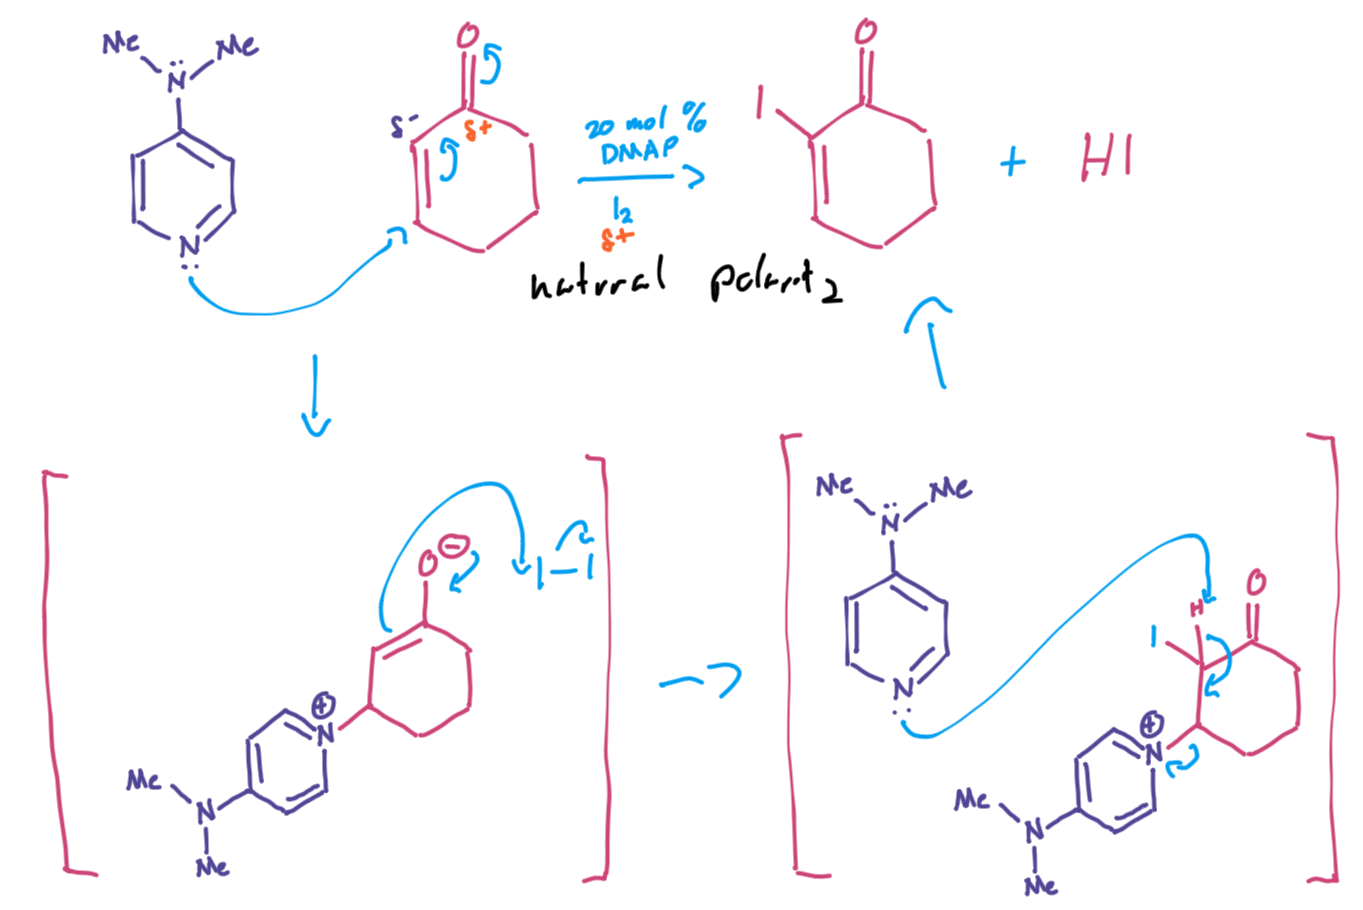 Me Me
N
N
O
δ- δ+
20 mol %
DMAP
I2
δ+
I O
+ HI
natural polarity
O
I-I
N
Me N
Me
Me Me
N
N
H O
I
N
Me N
Me